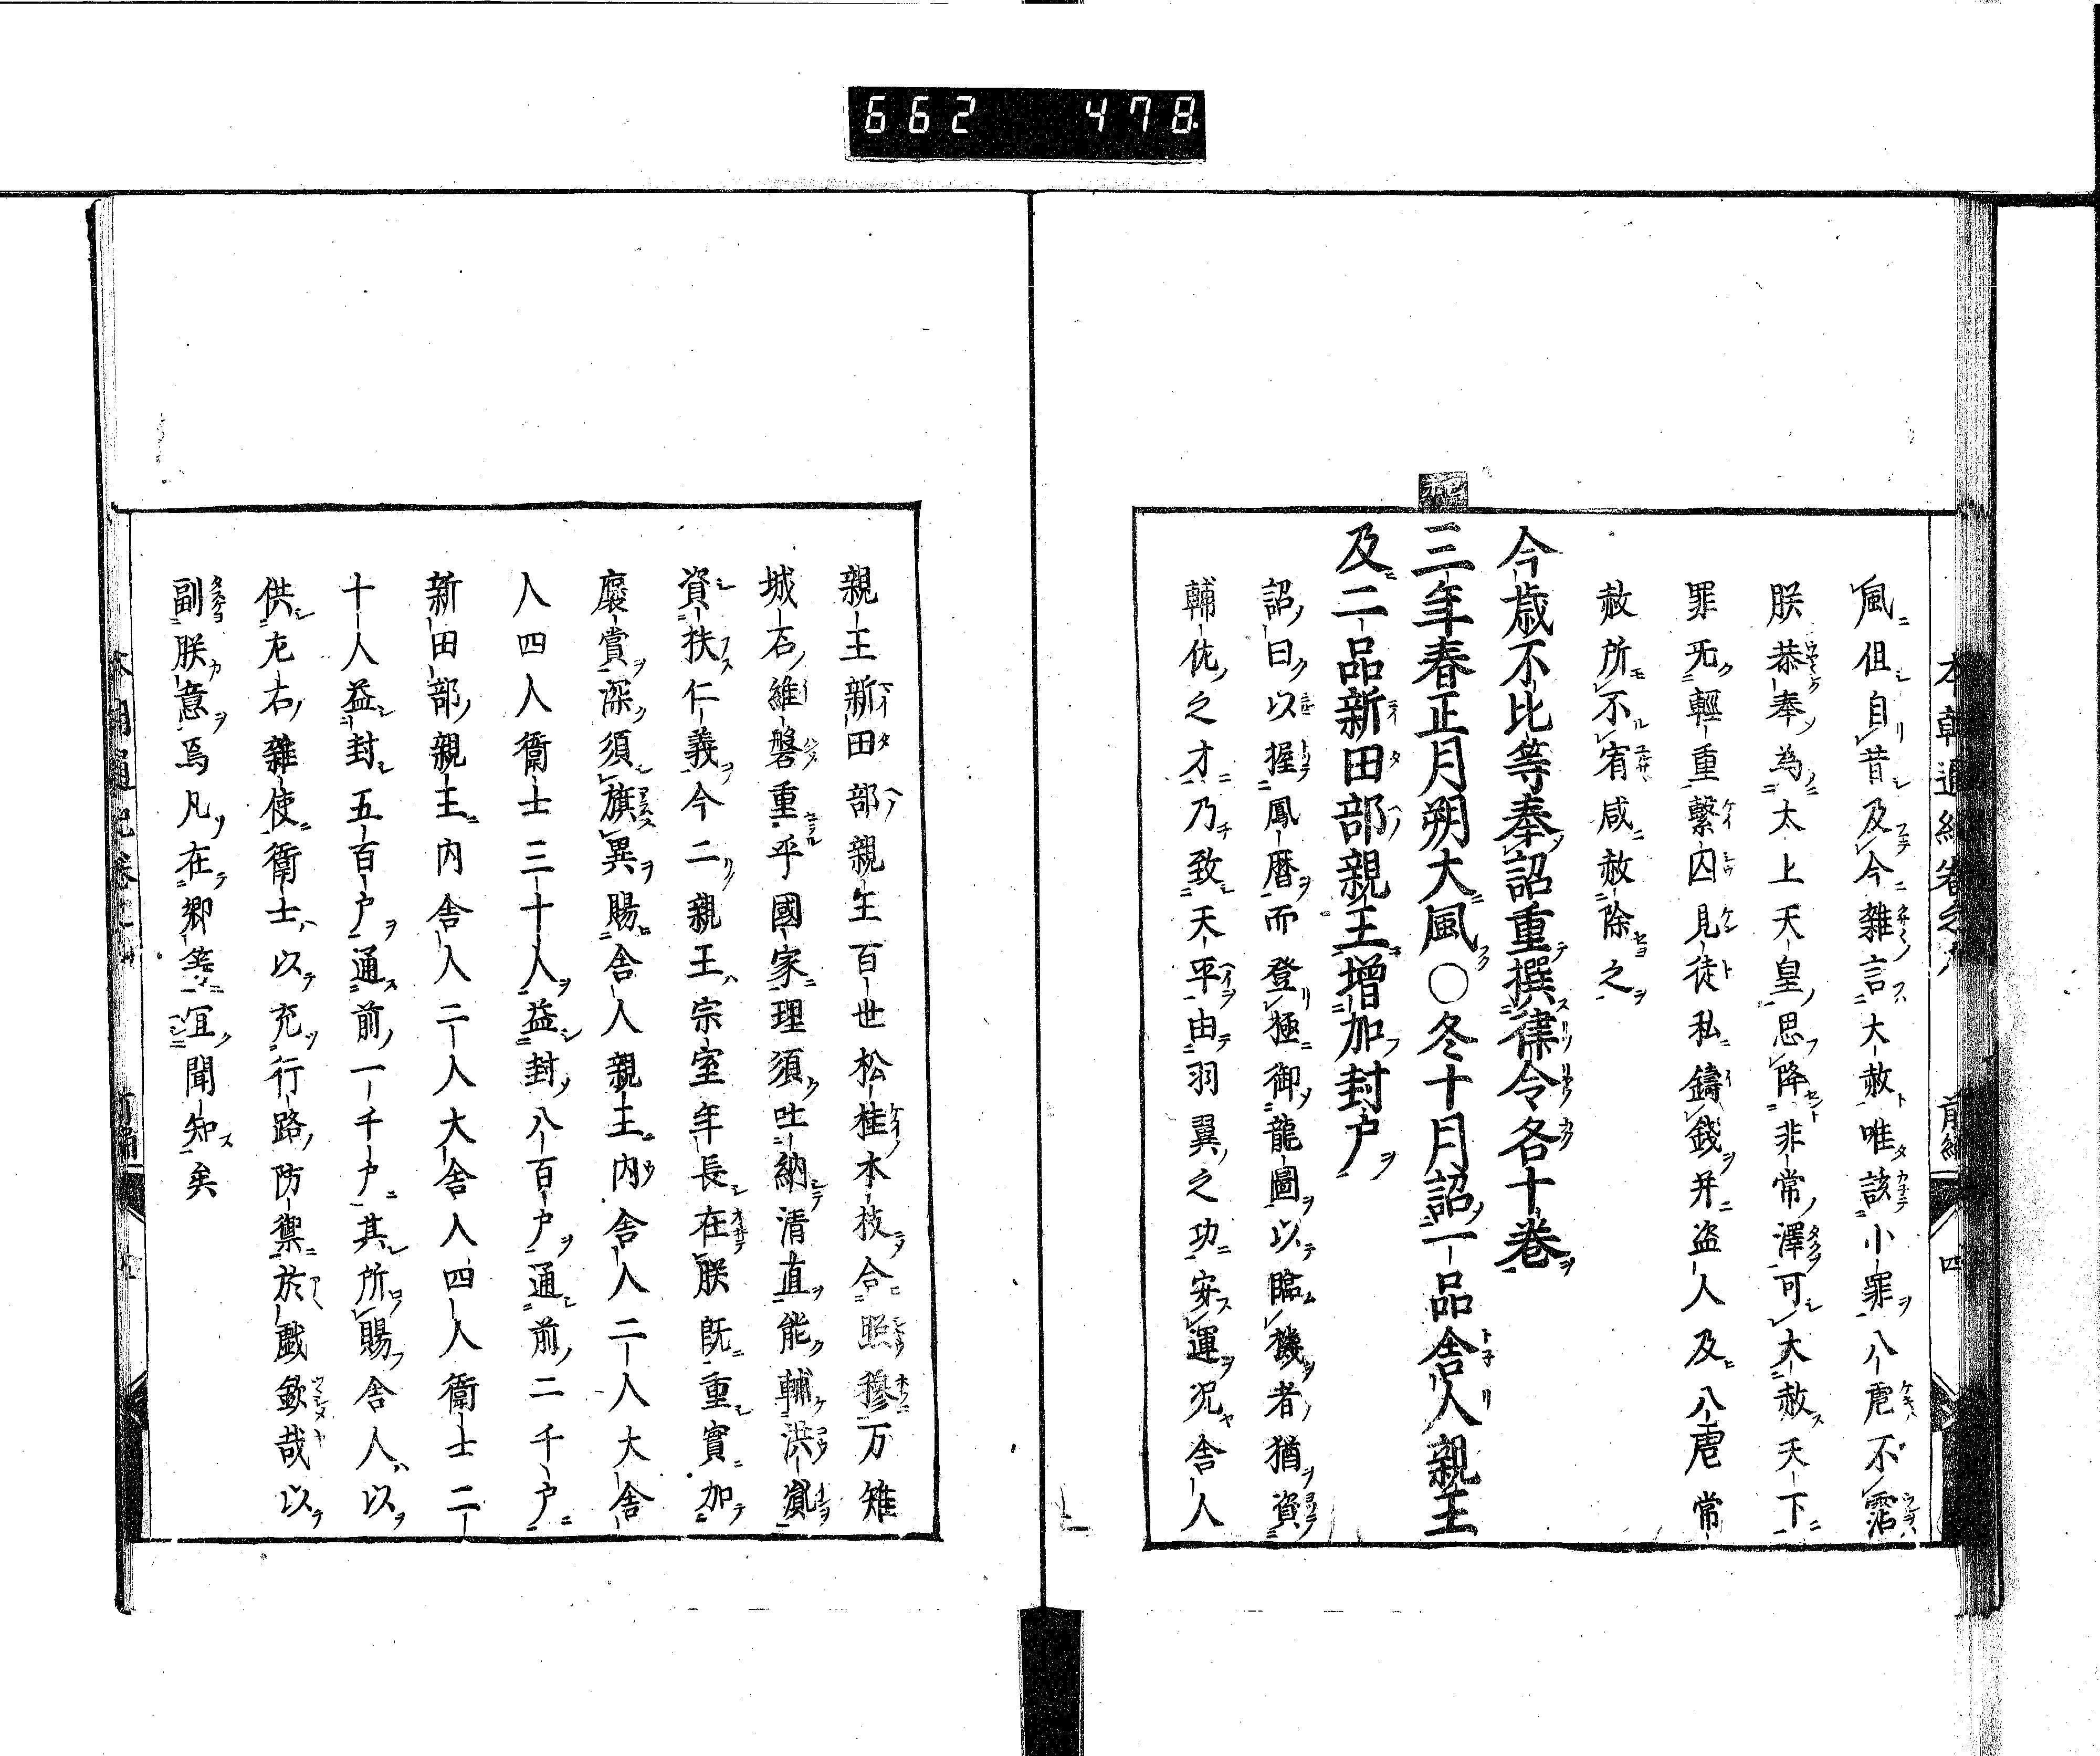 662 478
本朝通紀卷之八 前編 四
風但自昔及今雜言大赦唯該小罪八虐不霑
朕恭奉為太上天皇思降非常澤可大赦天下
罪无輕重繫囚見徒私鑄錢并盜人及八虐常
赦所不宥咸赦除之
今歳不比等奉詔重撰律令各十卷
三年春正月朔大風〇冬十月詔一品舍人親王
及二品新田部親王増加封户
詔曰以握鳳曆而登極御龍圖以臨機者猶資
輔佐之才乃致天平由羽翼之功安運况舍人
親王新田部親王百世松桂本枝合照穆万雉
城石維磐重乎國家理須吐納清直能輔洪
資扶仁義今二親王宗室年長在朕既重實加
褒賞深須旗異賜舍人親王内舍人二人大舍
人四人衛士三十人益封八百户通前二千户
新田部親王内舍人二人大舍人四人衛士二
十人益封五百户通前一千户其所賜舍人以
供左右雜使衛士以充行路防禦於戲欽哉以
副朕意焉凡在卿等宜聞知矣